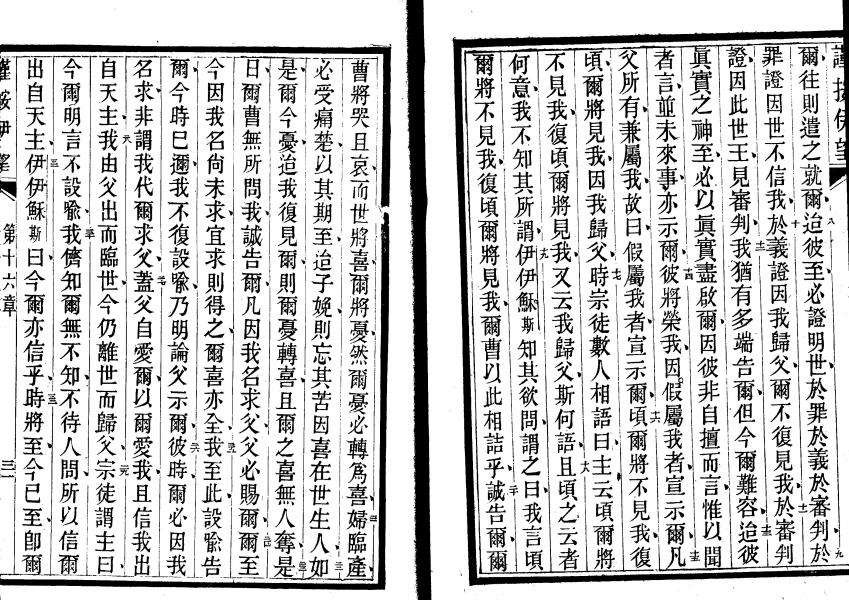 謹按伊望
爾往則遣之就爾迨彼至必證明世於罪於義於審判於
罪證因世不信我於義證因我歸父爾不復見我於審判
證因此世王見審判我猶有多端告爾但今爾難容迨彼
眞實之神至必以眞實盡啟爾因彼非自擅而言惟以聞
者言並未來事亦示爾彼將榮我因假屬我者宣示爾凡
父所有兼屬我故曰假屬我者宣示爾頃爾將不見我復
頃爾將見我因我歸父時宗徒數人相語曰主云頃爾將
不見我復頃爾將見我又云我歸父斯何語且頃之云者
何意我不知其所謂伊伊穌斯知其欲問謂之曰我言頃
爾將不見我復頃爾將見我爾曹以此相詰乎誠告爾爾
曹將哭且哀而世將喜爾將憂然爾憂必轉爲喜婦臨產
必受痛楚以其期至迨子娩則忘其苦因喜在世生人如
是爾今憂迨我復見爾則爾憂轉喜且爾之喜無人奪是
日爾曹無所問我誠告爾凡因我名求父父必賜爾爾至
今因我名尙未求宜求則得之爾喜亦全我至此設喩告
爾今時已邇我不復設喩乃明論父示爾彼時爾必因我
名求非謂我代爾求父蓋父自愛爾以爾愛我且信我出
自天主我由父出而臨世今仍離世而歸父宗徒謂主曰
今爾明言不設喩我儕知爾無不知不待人問所以信爾
出自天主伊伊穌斯曰今爾亦信乎時將至今已至卽爾
謹按伊望
第十六章